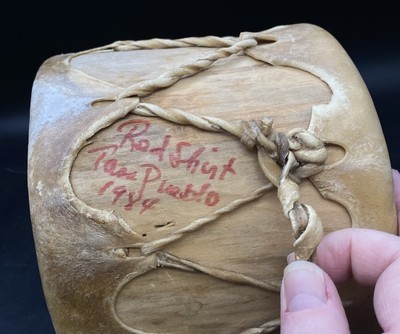 Red Shirt
Taos Pueblo
1984